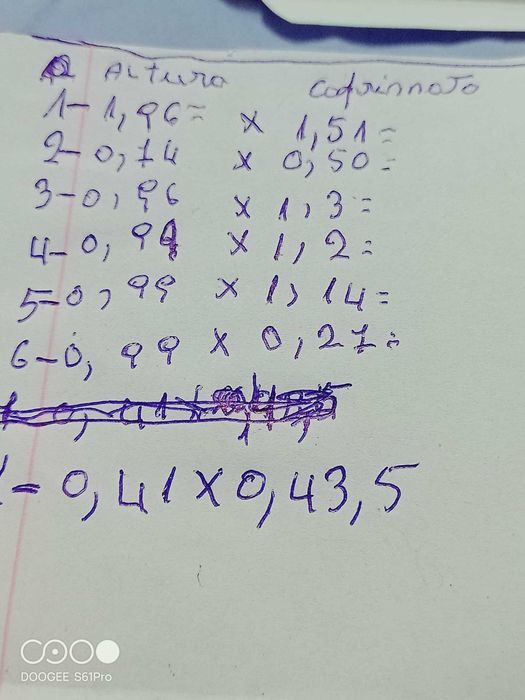 Altura Coprinnoto
1- 1,96= x 1,51=
2- 0,74 x 0,50=
3- 0,96 x 1,3=
4- 0,99 x 1,2=
5- 0,99 x 1,14=
6- 0,99 x 0,27=
- 0,41 x 0,43,5
DOOGEE S61Pro